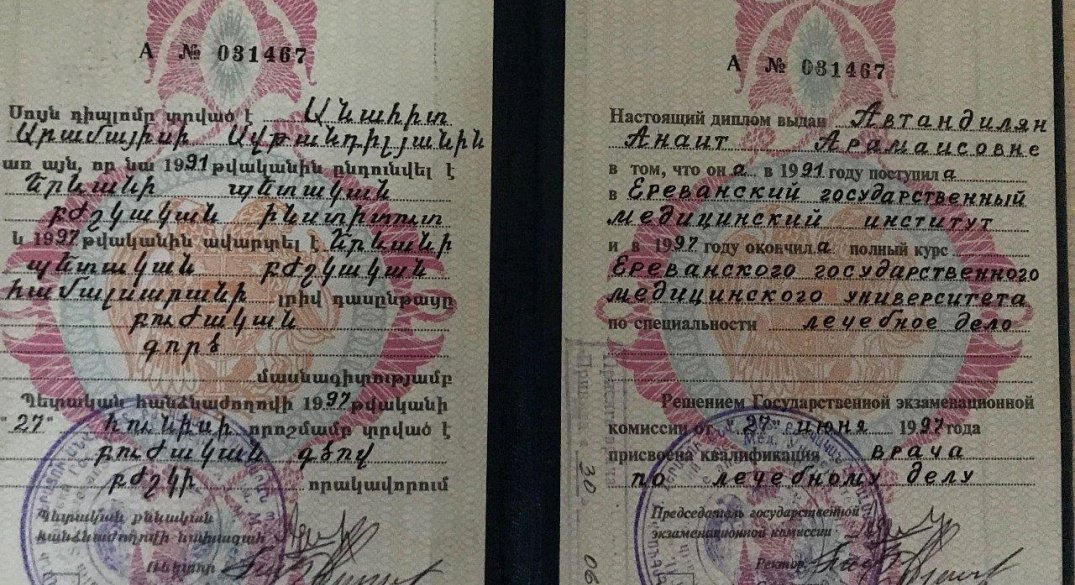 А № 031467
Սույն դիպլոմը տրված է Անահիտ
Արամայիսի Ավթանդիլյանին
առ այն, որ նա 1991 թվականին ընդունվել է
Երևանի պետական
բժշկական ինստիտուտ
և 1997 թվականին ավարտել է Երևանի
պետական բժշկական
համալսարանի լրիվ դասընթացը
բուժական
գործ
մասնագիտությամբ
Պետական հանձնաժողովի 1997 թվականի
"27" հունիսի որոշմամբ տրված է
բուժական գծով
բժշկի որակավորում
Պետական քննական
հանձնաժողովի նախագահ
Ռեկտոր
А № 031467
Настоящий диплом выдан Автандилян
Анаит Арамаисовне
в том, что она в 1991 году поступила
в Ереванский государственный
медицинский институт
и в 1997 году окончила полный курс
Ереванского государственного
медицинского университета
по специальности лечебное дело
Решением Государственной экзаменационной
комиссии от "27" июня 1997 года
присвоена квалификация врача
по лечебному делу
Председатель государственной
экзаменационной комиссии
Ректор
30
06